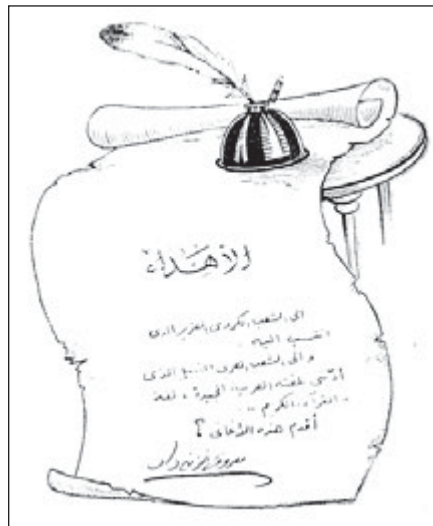 الأهداء
الى الشعب الكردي العزيز الذي
انتسب اليه
والى الشعب العربي النبيل الذي
أدّبني بلغته العربية المجيدة، لغة
القرآن الكريم ..
أقدم هذه الأغاني ؟